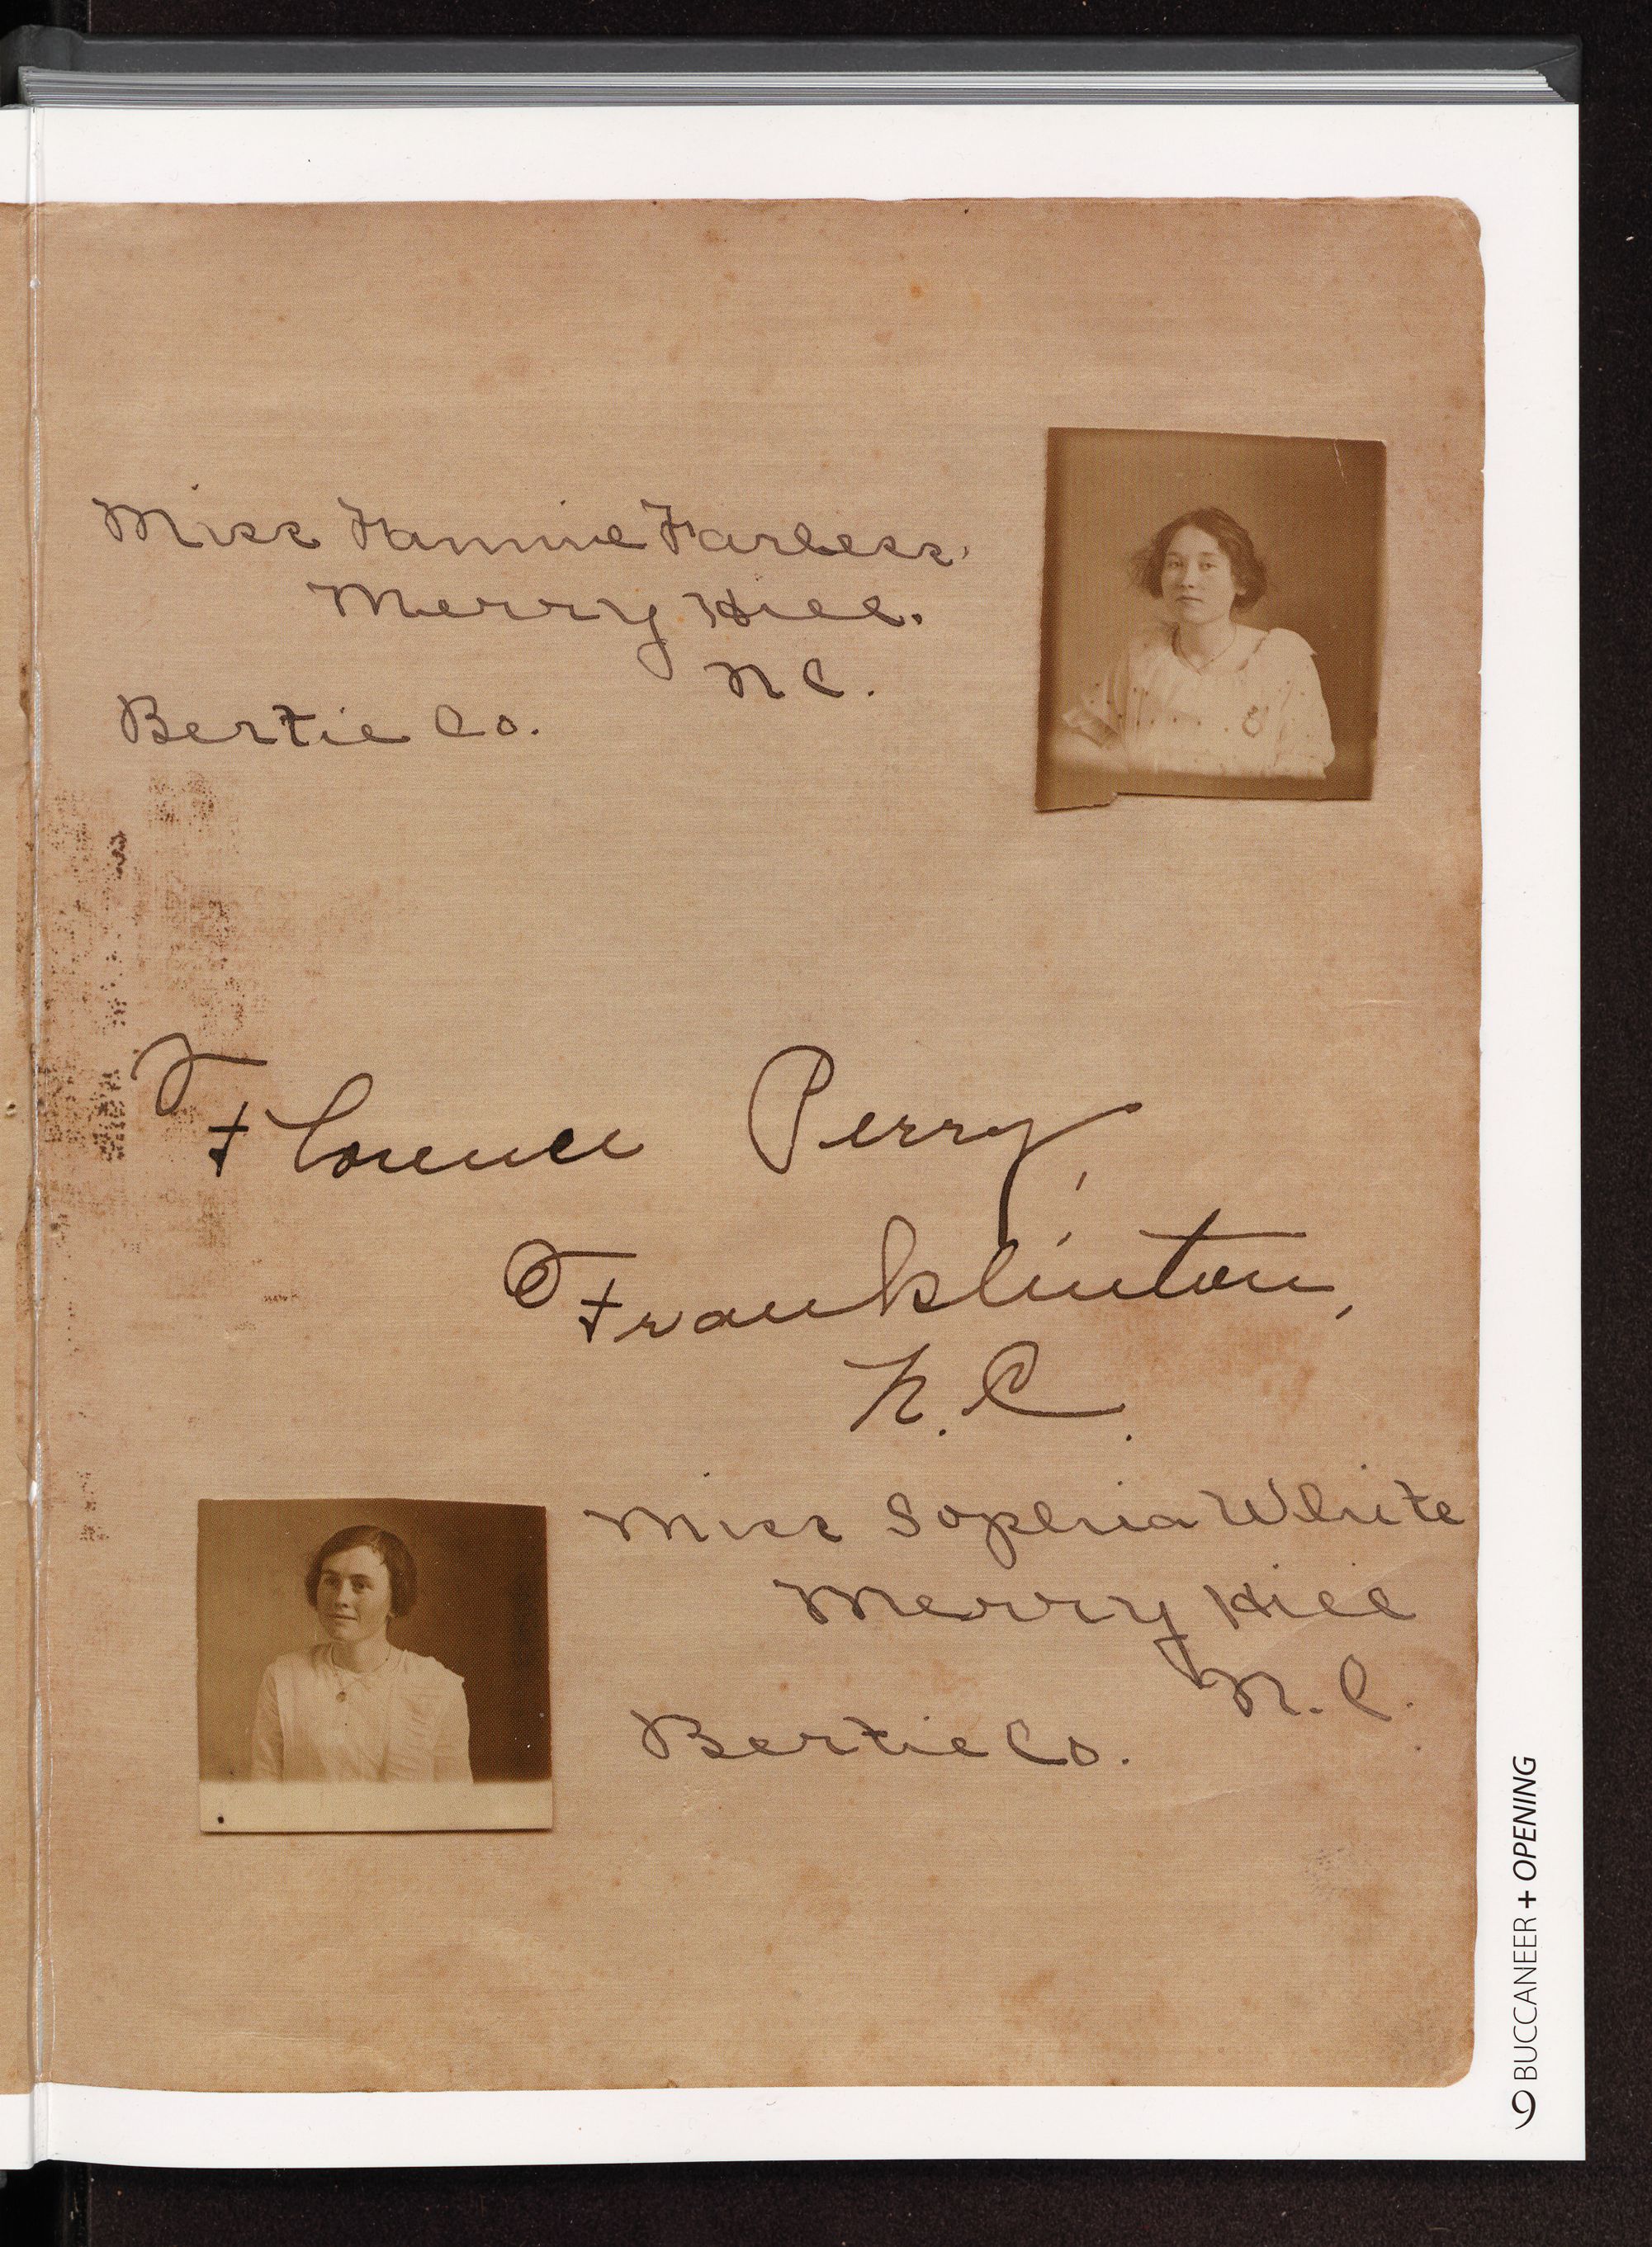 Miss Fannie Farless.
Merry Hill.
N C.
Bertie Co.
Florence Perry,
Franklinton,
N. C.
Miss Sophia White
Merry Hill
N. C.
Bertie Co.
9 BUCCANEER + OPENING